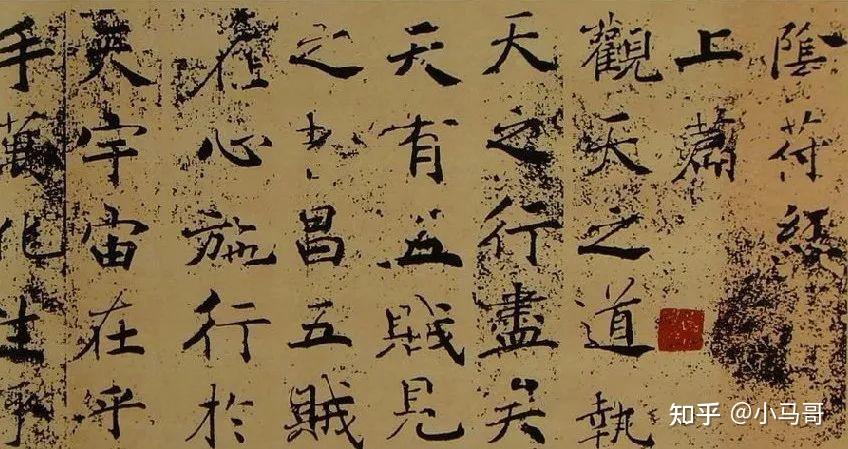 陰符經
上篇
觀天之道執
天之行盡矣
天有五賊見
之者昌五賊
在心施行於
天宇宙在乎
手萬化生乎
知乎 @小马哥